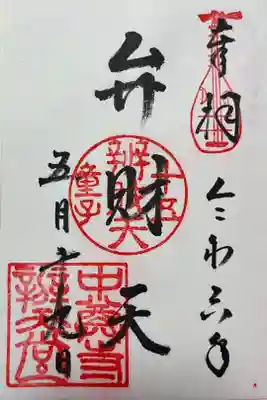 奉拝
令和六年
弁財天
五月十九日
辨財天
童子
中尊寺
辨天堂